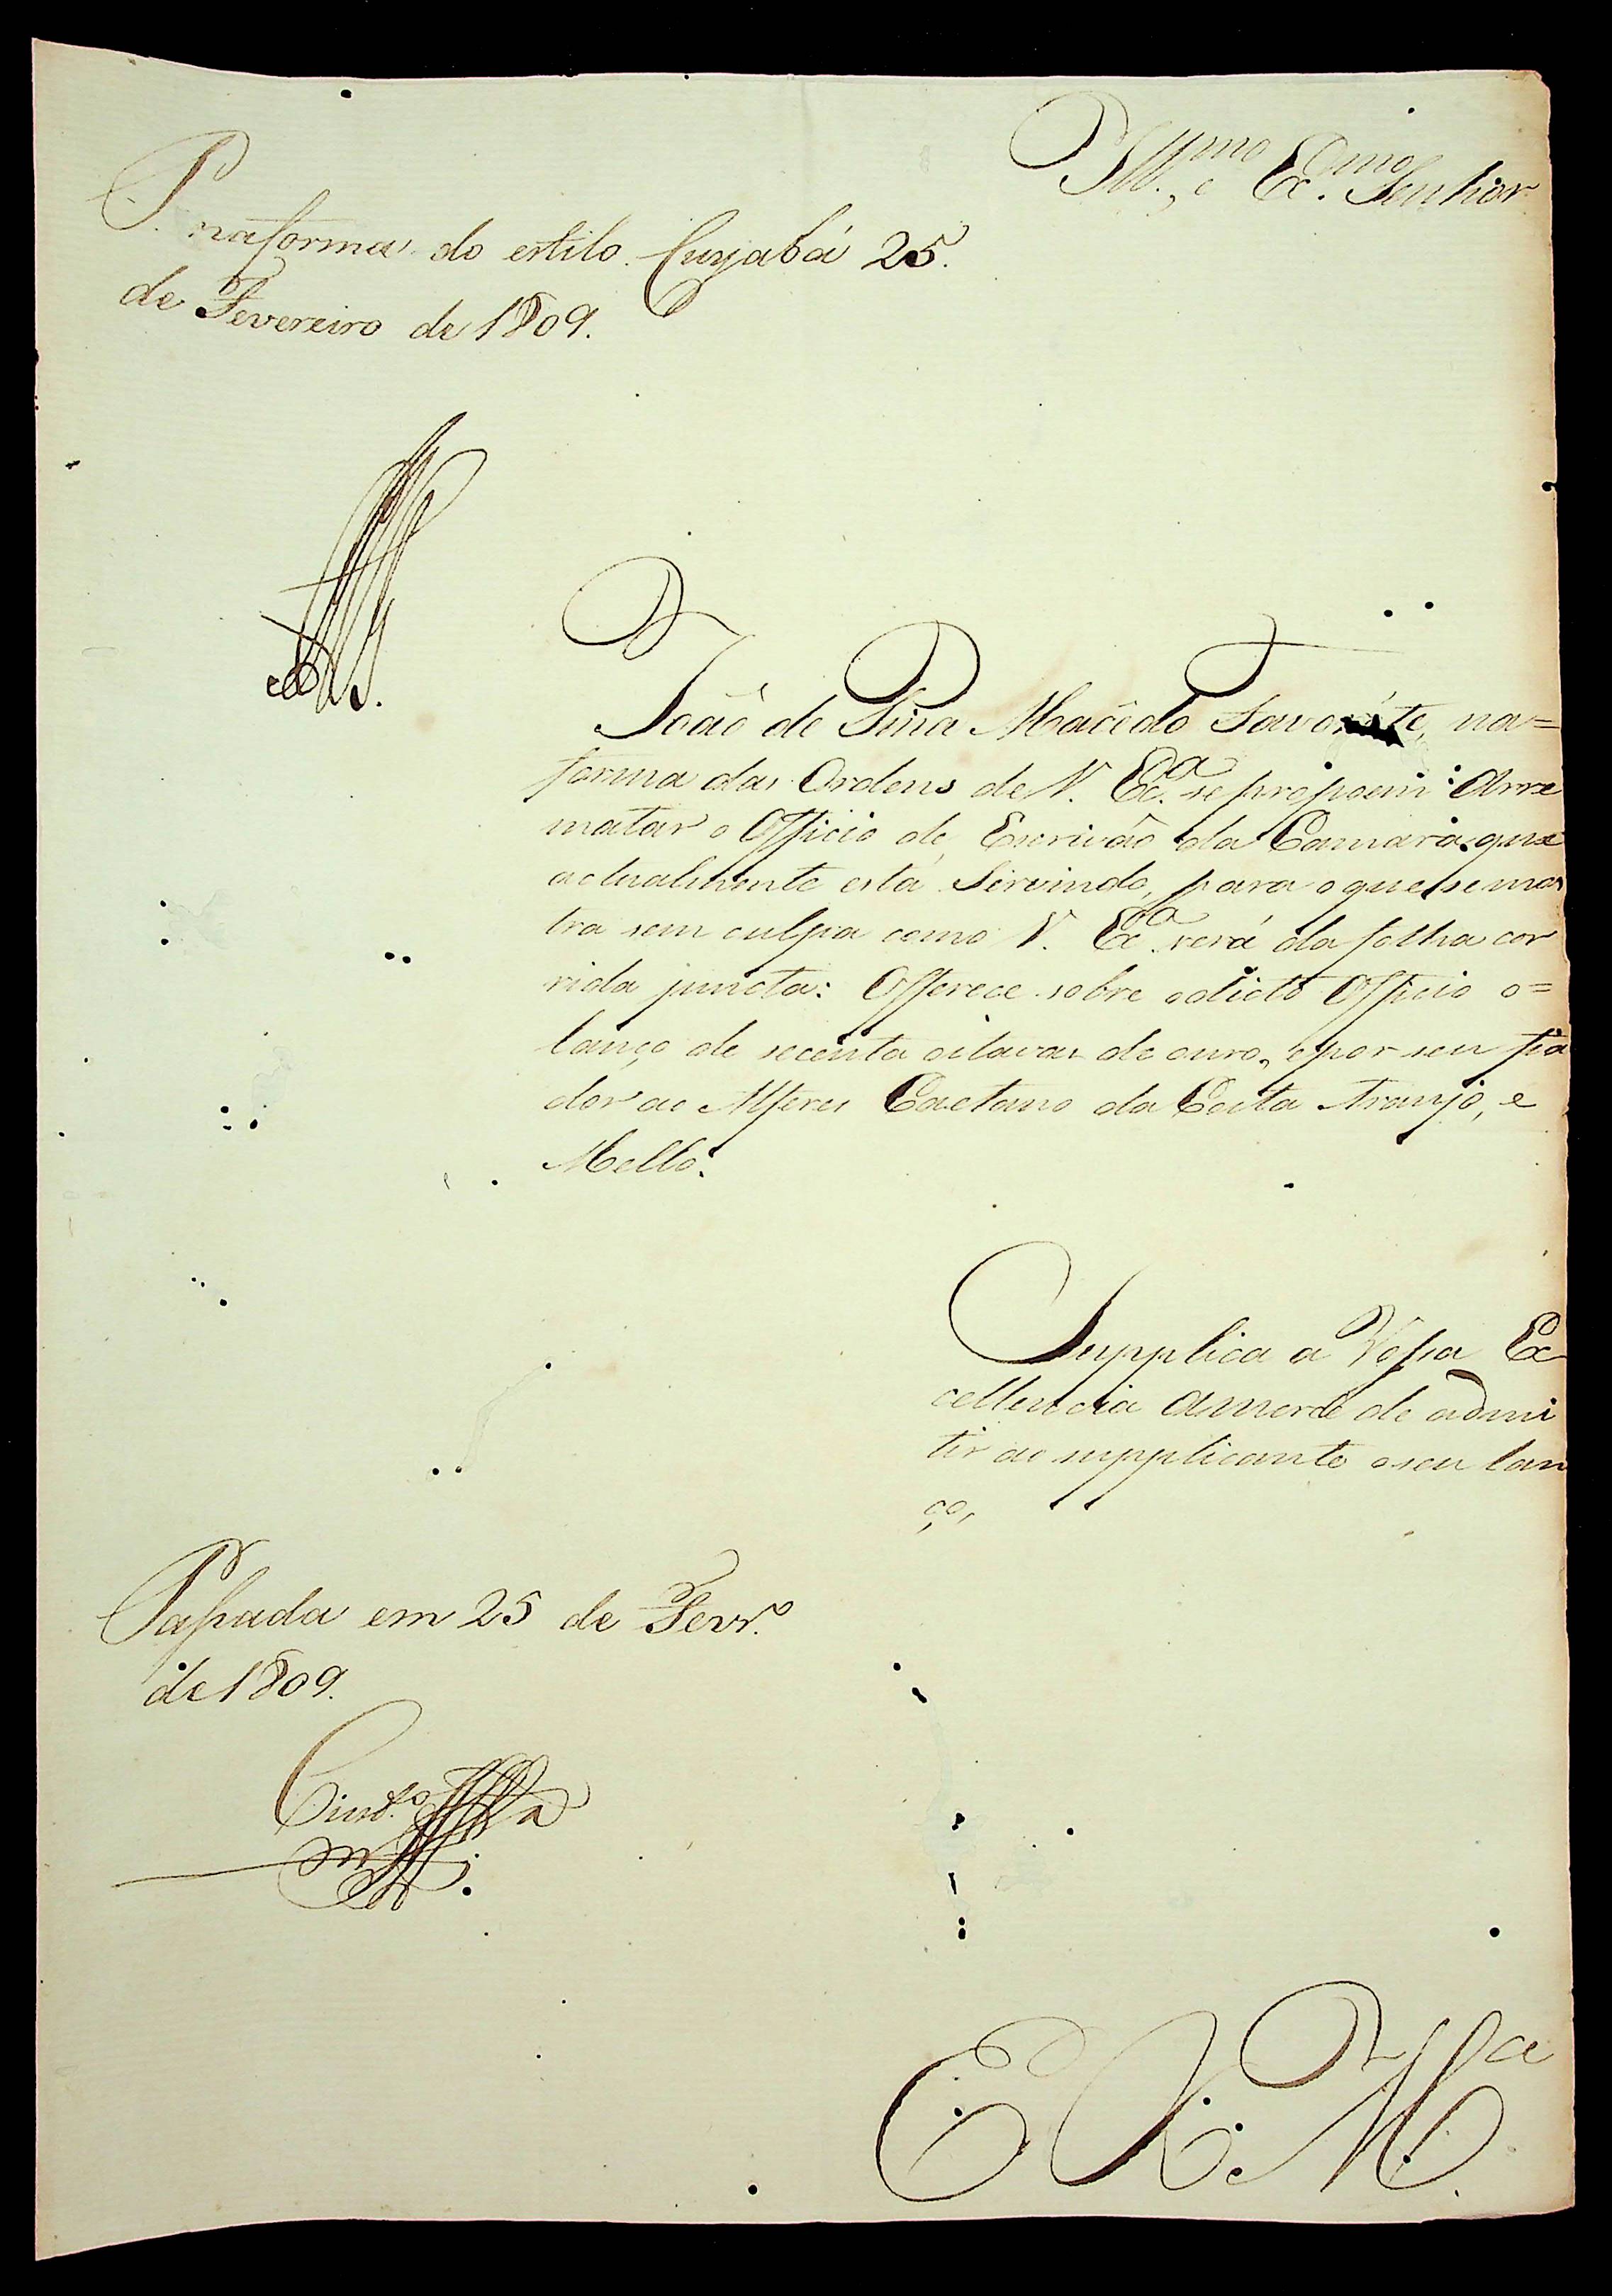 Ill.mo, e Ex.mo Senhor
P. naforma do estilo. Cuyabá 25.
de Fevereiro de 1809.
João de Pina Macêdo Favorite, na=
forma das Ordens de V. Ex.a se propoem Arre
matar o Officio de Escrivão da Camara, que
actualmente está Servindo, para o que se mos
tra sem culpa como V. Ex.a verá da folha cor
rida juncta: Offerece sobre odicto Officio o=
lanço de secenta oitavas de ouro, epor seu fia
dor ao Alferes Caetano da Costa Araujo, e
Mello.
Supplica a Vossa Ex
cellencia amercê de admi
tir ao supplicante oseu lan
ço,
Passada em 25 de Fevr.o
de 1809.
E R. M.ca